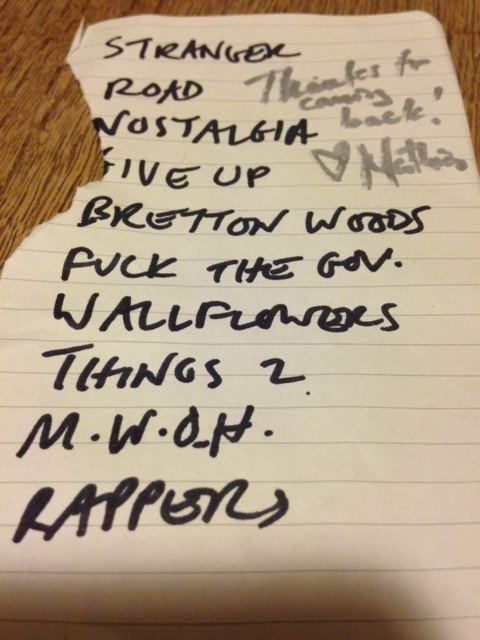 STRANGER
ROAD
Thanks for
coming
back!
NOSTALGIA
GIVE UP
BRETTON WOODS
FUCK THE GOV.
WALLFLOWERS
THINGS 2
M.W.O.H.
RAPPERS